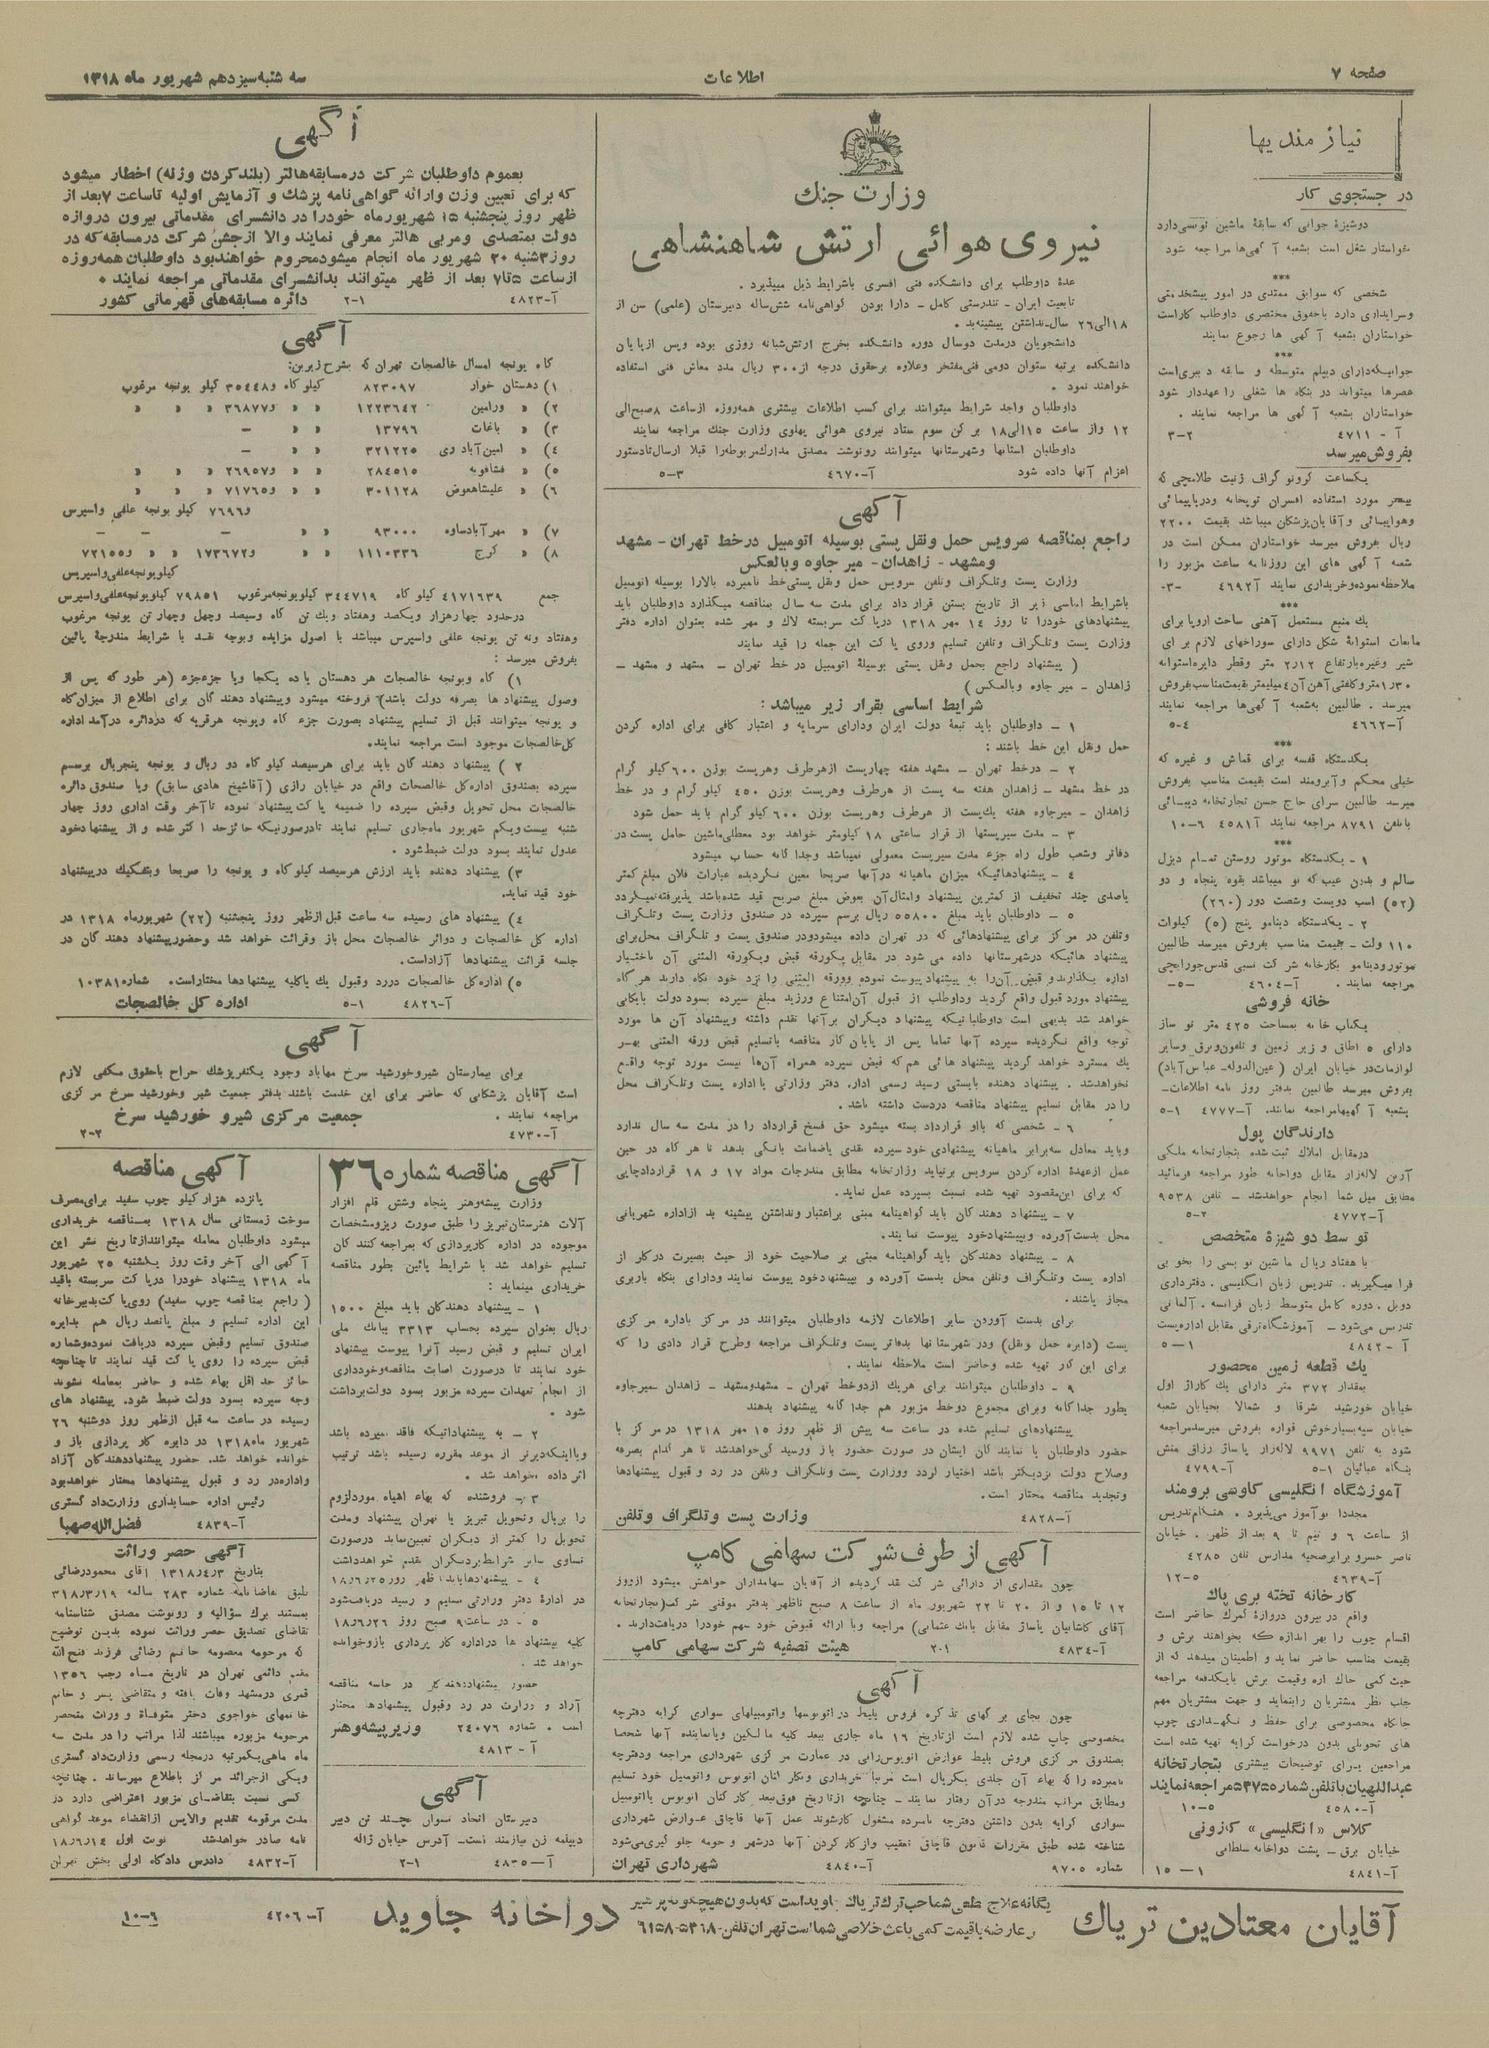 صفحه ۷
اطلاعات
سه شنبه سیزدهم شهریور ماه ۱۳۱۸
نیاز مندیها
در جستجوی کار
دوشیزهٔ جوانی که سابقهٔ ماشین نویسی دارد
خواستار شغل است بشعبه آگهی‌ها مراجعه شود
***
شخصی که سوابق ممتدی در امور پیشخدمتی
وسرایداری دارد باحقوق مختصری داوطلب کاراست
خواستاران بشعبه آگهی ها رجوع نمایند
***
جوانیکه‌دارای دیپلم متوسطه و سابقه دبیری‌است
عصرها میتواند در بنگاه ها شغلی را عهده‌دار شود
خواستاران بشعبه آگهی ها مراجعه نمایند .
آ - ۴۷۱۱ ۲-۳
بفروش میرسد
یکساعت کرونوگراف ژنیت طلامچی که
بیشتر مورد استفاده افسران توپخانه ودریاپیمائی
وهواپیمائی و آقایان‌پزشکان میباشد بقیمت ۲۲۰۰
ریال بفروش میرسد خواستاران ممکن است در
شعبه آگهی های این روزنامه ساعت مزبور را
ملاحظه‌نموده‌وخریداری نمایند آ-۴۶۹۲ -۳
***
یك منبع مستعمل آهنی ساخت اروپا برای
مایعات استوانهٔ شکل دارای سوراخهای لازم برای
شیر وغیره‌بارتفاع ۲٫۱۲ متر وقطر دایره‌استوانه
۱٫۳۰متروکلفتی‌آهن آن۴میلیمتر بقیمت‌مناسب‌بفروش
میرسد . طالبین بشعبه آگهی‌ها مراجعه نمایند
آ-۴۶۶۲ ۴-۵
***
یکدستگاه قفسه برای قماش و غیره که
خیلی محکم وآبرومند است بقیمت مناسب بفروش
میرسد طالبین سرای حاج حسن تجارتخانه دیبائی
باتلفن ۸۷۹۱ مراجعه نمایند آ-۴۵۸۱ ۶-۱۰
***
۱ - یکدستگاه موتور روستن تمام دیزل
سالم و بدون عیب‌که نو میباشد بقوه پنجاه و دو
(۵۲) اسب دویست وشصت دور (۲۶۰)
۲ - یکدستگاه دینامو پنج (۵) کیلوات
۱۱۰ ولت - بقیمت مناسب بفروش میرسد طالبین
موتورودینامو بکارخانه شرکت نسبی قدس‌جورابچی
مراجعه نمایند . آ-۴۶۰۴ -۵
خانه فروشی
یکباب خانه بمساحت ۴۲۵ متر نو ساز
دارای ۵ اطاق و زیر زمین و تلفون‌وبرق وسایر
لوازمات‌در خیابان ایران (عین‌الدوله- عباس‌آباد)
بفروش میرسد طالبین بدفتر روز نامه اطلاعات-
بشعبه آگهیهامراجعه نمایند. آ-۴۷۷۷ ۱-۵
دارندگان پول
درمقابل املاك ثبت شده بتجارتخانه ملکی
آزین لاله‌زار مقابل دواخانه طور مراجعه فرمائید
مطابق میل شما انجام خواهدشد - تلفن ۹۵۳۸
آ-۴۷۷۲ ۲-۵
توسط دو شیزهٔ متخصص
با هفتاد ریال ماشین نویسی را بخوبی
فرا میگیرید. تدریس زبان انگلیسی . دفترداری
دوبل . دوره کامل متوسط زبان فرانسه . آلمانی
تدریس می‌شود - آموزشگاه‌ترقی مقابل اداره‌پست
آ-۴۸۴۲ ۱-۵
یك قطعه زمین محصور
بمقدار ۳۷۲ متر دارای یك کاراژ اول
خیابان خورشید شرقا و شمالا بخیابان شعبه
خیابان سپه‌بسیارخوش قواره بفروش میرسدمراجعه
شود به تلفن ۹۹۷۱ لاله‌زار پاساژ رزاق منش
بنگاه عبائیان ۱-۵ آ-۴۷۹۹
آموزشگاه انگلیسی کاوسی برومند
مجددا نوآموز می‌پذیرد . هنگام‌تدریس
از ساعت ۶ و نیم تا ۹ بعد از ظهر . خیابان
ناصر خسرو برابرضحیه مدارس تلفن ۴۲۸۵
آ-۴۶۳۹ ۵-۱۲
کارخانه تخته بری پاك
واقع در بیرون دروازهٔ گمرك حاضر است
اقسام چوب را بهر اندازه که بخواهند برش و
بقیمت مناسب حاضر نماید و اطمینان میدهد که از
حیث کمی خاك اره وقیمت برش بایکدفعه مراجعه
جلب نظر مشتریان رابنماید و جهت مشتریان مهم
جایگاه مخصوصی برای حفظ و نگهداری چوب
های تحویلی بدون درخواست کرایه تهیه شده است
مراجعین برای توضیحات بیشتری بتجارتخانه
عبداللهیان‌باتلفن شماره۵۳۷۵مراجعه‌نمایند
آ-۴۵۸۰ ۵-۱۰
کلاس «انگلیسی» کازونی
خیابان برق - پشت دواخانه سلطانی
آ-۴۸۴۱ ۱-۱۵
وزارت جنك
نیروی هوائی ارتش شاهنشاهی
عدهٔ داوطلب برای دانشکده فنی افسری باشرایط ذیل میپذیرد .
تابعیت ایران - تندرستی کامل - دارا بودن گواهی‌نامه شش‌ساله دبیرستان (علمی) سن از
۱۸الی۲۶ سال-نداشتن پیشینه‌بد .
دانشجویان درمدت دوسال دوره دانشکده بخرج ارتش‌شبانه روزی بوده وپس ازپایان
دانشکده برتبه ستوان دومی فنی‌مفتخر وعلاوه برحقوق درجه از۳۰۰ ریال مدد معاش فنی استفاده
خواهند نمود .
داوطلبان واجد شرایط میتوانند برای کسب اطلاعات بیشتری همه‌روزه ازساعت ۸صبح‌الی
۱۲ واز ساعت ۱۵الی۱۸ برکن سوم ستاد نیروی هوائی پهلوی وزارت جنك مراجعه نمایند
داوطلبان استانها وشهرستانها میتوانند رونوشت مصدق مدارك‌مربوطه‌را قبلا ارسال‌تادستور
اعزام آنها داده شود آ-۴۶۷۰ ۳-۵
آگهی
راجع بمناقصه سرویس حمل ونقل پستی بوسیله اتومبیل درخط تهران - مشهد
ومشهد - زاهدان- میر جاوه وبالعکس
وزارت پست وتلگراف وتلفن سرویس حمل ونقل پستی‌خط نامبرده بالارا بوسیله اتومبیل
باشرایط اساسی زیر از تاریخ بستن قرار داد برای مدت سه سال بمناقصه میگذارد داوطلبان باید
پیشنهادهای خودرا تا روز ۱۴ مهر ۱۳۱۸ درپاکت سربسته لاك و مهر شده بعنوان اداره دفتر
وزارت پست وتلگراف وتلفن تسلیم وروی پاکت این جمله را قید نمایند
( پیشنهاد راجع بحمل ونقل پستی بوسیلهٔ اتومبیل در خط تهران - مشهد و مشهد -
زاهدان - میر جاوه وبالعکس )
شرایط اساسی بقرار زیر میباشد :
۱ - داوطلبان باید تبعهٔ دولت ایران ودارای سرمایه و اعتبار کافی برای اداره کردن
حمل ونقل این خط باشند :
۲ - درخط تهران - مشهد هفته چهارپست ازهرطرف وهرپست بوزن ۶۰۰ کیلو گرام
در خط مشهد - زاهدان هفته سه پست از هرطرف وهرپست بوزن ۴۵۰ کیلو گرام و در خط
زاهدان - میرجاوه هفته یك‌پست از هرطرف وهرپست بوزن ۶۰۰ کیلو گرام باید حمل شود
۳ - مدت سیرپستها از قرار ساعتی ۱۸ کیلومتر خواهد بود معطلی‌ماشین حامل پست در
دفاتر وشعب طول راه جزء مدت سیرپست معمولی نمیباشد وجداگانه حساب میشود
۴ - پیشنهادهائیکه میزان ماهیانه درآنها صریحا معین نگردیده عبارات فلان مبلغ کمتر
یاصدی چند تخفیف از کمترین پیشنهاد وامثال‌آن بعوض مبلغ صریح قید شده‌باشد پذیرفته‌نمیگردد
۵ - داوطلبان باید مبلغ ۵۵۸۰۰ ریال برسم سپرده در صندوق وزارت پست وتلگراف
وتلفن در مرکز برای پیشنهادهائی که در تهران داده میشودودر صندوق پست و تلگراف محل‌برای
پیشنهاد هائیکه درشهرستانها داده می شود در مقابل یکورقه قبض ویکورقه المثنی آن باختیار
اداره بگذارندو قبض آن‌را به پیشنهادپیوست نموده وورقه المثنی را نزد خود نگاه دارند هرگاه
پیشنهاد مورد قبول واقع گردید وداوطلب از قبول آن‌امتناع ورزید مبلغ سپرده بسود دولت بایگانی
خواهد شد بدیهی است داوطلبانیکه پیشنهاد دیگران برآنها تقدم داشته وپیشنهاد آن ها مورد
توجه واقع نگردیده سپرده آنها تماما پس از پایان کار مناقصه باتسلیم قبض ورقه المثنی بهر
یك مسترد خواهد گردید پیشنهاد هائی هم که قبض سپرده همراه آن‌ها نیست مورد توجه واقع
نخواهدشد . پیشنهاد دهنده بایستی رسید رسمی اداره دفتر وزارتی یااداره پست وتلگراف محل
را در مقابل تسلیم پیشنهاد مناقصه دردست داشته باشد.
۶ - شخصی که بااو قرارداد بسته میشود حق فسخ قرارداد را در مدت سه سال ندارد
وباید معادل سه‌برابر ماهیانه پیشنهادی خود سپرده نقدی یاضمانت بانکی بدهد تا هر گاه در حین
عمل ازعهدهٔ اداره کردن سرویس برنیاید وزارتخانه مطابق مندرجات مواد ۱۷ و ۱۸ قراردادچاپی
که برای این‌مقصود تهیه شده نسبت بسپرده عمل نماید.
۷ - پیشنهاد دهندگان باید گواهینامه مبنی براعتبار ونداشتن پیشینه بد ازاداره شهربانی
محل بدست‌آورده وبپیشنهادخود پیوست نمایند.
۸ - پیشنهاد دهندکان باید گواهینامه مبنی بر صلاحیت خود از حیث بصیرت درکار از
اداره پست وتلگراف وتلفن محل بدست آورده و بپیشنهادخود پیوست نمایند ودارای بنگاه باربری
مجاز باشند.
برای بدست آوردن سایر اطلاعات لازمه داوطلبان میتوانند در مرکز باداره مرکزی
پست (دایره حمل ونقل) ودر شهرستانها بدفاتر پست وتلگراف مراجعه وطرح قرار دادی را که
برای این کار تهیه شده وحاضر است ملاحظه نمایند .
۹ - داوطلبان میتوانند برای هریك ازدوخط تهران - مشهدومشهد - زاهدان -میرجاوه
بطور جداگانه وبرای مجموع دوخط مزبور هم جداگانه پیشنهاد بدهند
پیشنهادهای تسلیم شده در ساعت سه پیش از ظهر روز ۱۵ مهر ۱۳۱۸ درمرکز با
حضور داوطلبان یا نمایندگان ایشان در صورت حضور باز ورسیدگی‌خواهدشد تا هر کدام بصرفه
وصلاح دولت نزدیکتر باشد اختیار گردد ووزارت پست وتلگراف وتلفن در رد و قبول پیشنهادها
وتجدید مناقصه مختار است.
آ-۴۸۲۸ وزارت پست وتلگراف وتلفن
آگهی از طرف شرکت سهامی کامپ
چون مقداری از دارائی شرکت نقد گردیده از آقایان سهامداران خواهش میشود ازروز
۱۲ تا ۱۵ و از ۲۰ تا ۲۲ شهریور ماه از ساعت ۸ صبح تاظهر بدفتر موقتی شرکت(تجارتخانه
آقای کاشانیان پاساژ مقابل بانك عثمانی) مراجعه وبا ارائه قبوض خود سهم خودرا دریافت‌دارند .
آ-۴۸۳۴ ۱-۲ هیئت تصفیه شرکت سهامی کامپ
آگهی
چون بجای برگهای تذکره فروش بلیط دراتوبوسها واتومبیلهای سواری کرایه دفترچه
مخصوصی چاپ شده لازم است ازتاریخ ۱۶ ماه جاری ببعد کلیه مالکین ویانماینده آنها شخصا
بصندوق مرکزی فروش بلیط عوارض اتوبوس‌رانی در عمارت مرکزی شهرداری مراجعه ودفترچه
نامبرده راکه بهاء آن جلدی یکریال است مرتبا خریداری وبکارکنان اتوبوس واتومبیل خود تسلیم
ومطابق مراتب مندرجه درآن رفتار نمایند - چنانچه ازتاریخ فوق‌ببعد کارکنان اتوبوس یااتومبیل
سواری کرایه بدون داشتن دفترچه نامبرده مشغول کارشوند عمل آنها قاچاق عوارض شهرداری
شناخته شده طبق مقررات قانون قاچاق تعقیب وازکارکردن آنها درشهر و حومه جلوگیری‌میشود
شماره ۹۷۰۵ آ-۴۸۴۰ شهرداری تهران
آگهی
بعموم داوطلبان شرکت درمسابقه‌هالتر (بلندکردن وزنه) اخطار میشود
که برای تعیین وزن وارائه گواهی‌نامه پزشك و آزمایش اولیه تاساعت ۷بعد از
ظهر روز پنجشنبه ۱۵ شهریورماه خودرا در دانشسرای مقدماتی بیرون دروازه
دولت بمتصدی ومربی هالتر معرفی نمایند والا ازجشن شرکت درمسابقه‌که در
روز۳شنبه ۲۰ شهریور ماه انجام میشودمحروم خواهندبود داوطلبان همه‌روزه
ازساعت ۵تا۷ بعد از ظهر میتوانند بدانشسرای مقدماتی مراجعه نمایند .
آ-۴۸۲۳ ۱-۲ دائره مسابقه‌های قهرمانی کشور
آگهی
کاه یونجه امسال خالصجات تهران که بشرح زیرین:
۱) دهستان خوار ۸۲۳۰۹۷ کیلو کاه و۳۵۴۴۸ کیلو یونجه مرغوب
۲) « ورامین ۱۲۲۳۶۴۲ « « و۳۶۸۷۷ « « «
۳) « باغات ۱۳۷۹۶ « « -
۴) « امین‌آباد ری ۳۲۱۲۲۵ « « -
۵) « فشافویه ۲۸۴۵۱۵ « « و۲۶۹۵۷ « « «
۶) « علیشاهعوض ۳۰۱۱۲۸ « « و۷۱۷۶۵ « « «
و۷۶۹۶ کیلو یونجه علفی واسپرس
۷) « مهرآبادساوه ۹۳۰۰۰ « « - - -
۸) « کرج ۱۱۱۰۳۳۶ « « و۱۷۳۶۷۲ « « و۷۲۱۵۵
کیلویونجه‌علفی‌واسپرس
جمع ۴۱۷۱۶۳۹ کیلو کاه ۳۴۴۷۱۹ کیلویونجه‌مرغوب ۷۹۸۵۱ کیلویونجه‌علفی‌واسپرس
درحدود چهارهزار ویکصد وهفتاد ویك تن کاه وسیصد وچهل وچهار تن یونجه مرغوب
وهفتاد ونه تن یونجه علفی واسپرس میباشد با اصول مزایده وبوجه نقد با شرایط مندرجهٔ پائین
بفروش میرسد :
۱) کاه ویونجه خالصجات هر دهستان یا ده یکجا ویا جزءجزء (هر طور که پس از
وصول پیشنهاد ها بصرفه دولت باشد) فروخته میشود وپیشنهاد دهندگان برای اطلاع از میزان‌کاه
و یونجه میتوانند قبل از تسلیم پیشنهاد بصورت جزء کاه ویونجه هرقریه که دردائره درآمد اداره
کل‌خالصجات موجود است مراجعه نمایند.
۲ ) پیشنهاد دهندگان باید برای هرسیصد کیلو کاه دو ریال و یونجه پنجریال برسم
سپرده بصندوق اداره‌کل خالصجات واقع در خیابان رازی (آقاشیخ هادی سابق) ویا صندوق دائره
خالصجات محل تحویل وقبض سپرده را ضمیمه پاکت پیشنهاد نموده تاآخر وقت اداری روز چهار
شنبه بیست‌ویکم شهریور ماه‌جاری تسلیم نمایند تادرصورتیکه حائزحد اکثر شده و از پیشنهادخود
عدول نمایند بسود دولت ضبط‌شود .
۳) پیشنهاد دهنده باید ارزش هرسیصد کیلو کاه و یونجه را صریحا وبتفکیك درپیشنهاد
خود قید نماید.
۴) پیشنهاد های رسیده سه ساعت قبل ازظهر روز پنجشنبه (۲۲) شهریورماه ۱۳۱۸ در
اداره کل خالصجات و دوائر خالصجات محل باز وقرائت خواهد شد وحضورپیشنهاد دهندگان در
جلسه قرائت پیشنهادها آزاداست.
۵) اداره‌کل خالصجات دررد وقبول یك یاکلیه پیشنهادها مختاراست. شماره۱۰۳۸۱
آ-۴۸۲۶ ۱-۵ اداره کل خالصجات
آگهی
برای بیمارستان شیروخورشید سرخ مهاباد وجود یکنفرپزشك جراح باحقوق مکفی لازم
است آقایان پزشکانی که حاضر برای این خدمت باشند بدفتر جمعیت شیر وخورشید سرخ مرکزی
مراجعه نمایند . جمعیت مرکزی شیرو خورشید سرخ
آ-۴۷۳۰ ۲-۲
آگهی مناقصه شماره ۳۶
وزارت پیشه‌وهنر پنجاه وشش قلم افزار
آلات هنرستان‌تبریز را طبق صورت ریزومشخصات
موجوده در اداره کارپردازی که بمراجعه‌کنندگان
تسلیم خواهد شد با شرایط پائین بطور مناقصه
خریداری مینماید :
۱ - پیشنهاد دهندکان باید مبلغ ۱۵۰۰
ریال بعنوان سپرده بحساب ۳۳۱۳ ببانك ملی
ایران تسلیم و قبض رسید آنرا پیوست پیشنهاد
خود نمایند تا درصورت اصابت مناقصه‌وخودداری
از انجام تعهدات سپرده مزبور بسود دولت‌برداشت
شود .
۲ - به پیشنهاداتیکه فاقد سپرده باشد
ویااینکه‌دیرتر از موعد مقرره رسیده باشد ترتیب
اثر داده نخواهد شد .
۳ - فروشنده که بهاء اشیاء موردلزوم
را بریال وتحویل تبریز یا تهران پیشنهاد ومدت
تحویل را کمتر از دیگران تعیین‌نماید درصورت
تساوی سایر شرایط‌بردیگران تقدم خواهدداشت
۴ - پیشنهادهاباید تا ظهر روز۱۸٫۶٫۲۵
در ادارهٔ دفتر وزارتی تسلیم و رسید دریافت‌شود
۵ - در ساعت۹ صبح روز ۱۸٫۶٫۲۶
کلیه پیشنهاد ها دراداره کارپردازی بازوخوانده
خواهد شد .
حضور پیشنهاددهندگان در جلسه مناقصه
آزاد و وزارت در رد وقبول پیشنهادها مختار
است . شماره ۲۴۰۷۶ وزیرپیشه‌وهنر
آ - ۴۸۱۳
آگهی
دبیرستان اتحاد نسوان بچند تن دبیر
دیپلمه زن نیازمند است- آدرس خیابان ژاله
آ-۴۸۳۵ ۱-۲
آگهی مناقصه
پانزده هزارکیلو چوب سفید برای‌مصرف
سوخت زمستانی سال ۱۳۱۸ بمناقصه خریداری
میشود داوطلبان معامله میتوانندازتاریخ نشر این
آگهی الی آخر وقت روز یکشنبه ۲۵ شهریور
ماه ۱۳۱۸ پیشنهاد خودرا درپاکت سربسته باقید
( راجع بمناقصه چوب سفید) روی‌پاکت‌بدبیرخانه
این اداره تسلیم و مبلغ پانصد ریال هم بدایره
صندوق تسلیم وقبض سپرده دریافت نموده‌وشماره
قبض سپرده را روی پاکت قید نمایند تاچنانچه
حائز حد اقل بهاء شده و حاضر بمعامله نشوند
وجه سپرده بسود دولت ضبط شود. پیشنهاد های
رسیده در ساعت سه قبل ازظهر روز دوشنبه ۲۶
شهریور ماه۱۳۱۸ در دایره کارپردازی باز و
خوانده خواهد شد. حضور پیشنهاددهندکان آزاد
واداره‌در رد و قبول پیشنهادها مختار خواهدبود
رئیس اداره حسابداری وزارت‌دادگستری
آ-۴۸۳۹ فضل‌الله‌صهبا
آگهی حصر وراثت
بتاریخ ۱۳۱۸٫۴٫۳ آقای محمودرضائی
طبق تقاضانامه شماره ۲۸۳ سالمه ۳۱۸٫۳٫۱۹
بمستند برك سؤالیه و رونوشت مصدق شناسنامه
تقاضای تصدیق حصر وراثت نموده بدین توضیح
که مرحومه معصومه خانم رضائی فرزند فتح‌الله
مقیم دائمی تهران در تاریخ ماه رجب ۱۳۵۶
قمری درمشهد وفات یافته و متقاضی پسر و خانم
خانمهای خواجوی دختر متوفاة و وراث منحصر
مرحومه مزبوره میباشند لذا مراتب را در مدت سه
ماه ماهی‌یکمرتبه درمجله رسمی وزارت‌دادگستری
ویکی ازجرائد مرکز باطلاع میرساند . چنانچه
کسی نسبت بتقاضای مزبور اعتراضی دارد در
مدت مرقومه تقدیم والاپس ازانقضاء موعد گواهی
نامه صادر خواهدشد نوبت اول ۱۸٫۶٫۱۴
آ-۴۸۳۲ دادرس دادگاه اولی بخش تهران
آقایان معتادین تریاك
یگانه‌علاج قطعی‌شماحب‌ترك‌تریاك جاویداست که‌بدون‌هیچگونه‌پرهیز
و عارضه‌باقیمت کمی‌باعث‌خلاصی شمااست تهران‌تلفن-۵۳۶۸-۶۱۵۸
دواخانه جاوید
آ-۴۲۰۶ ۶-۱۰